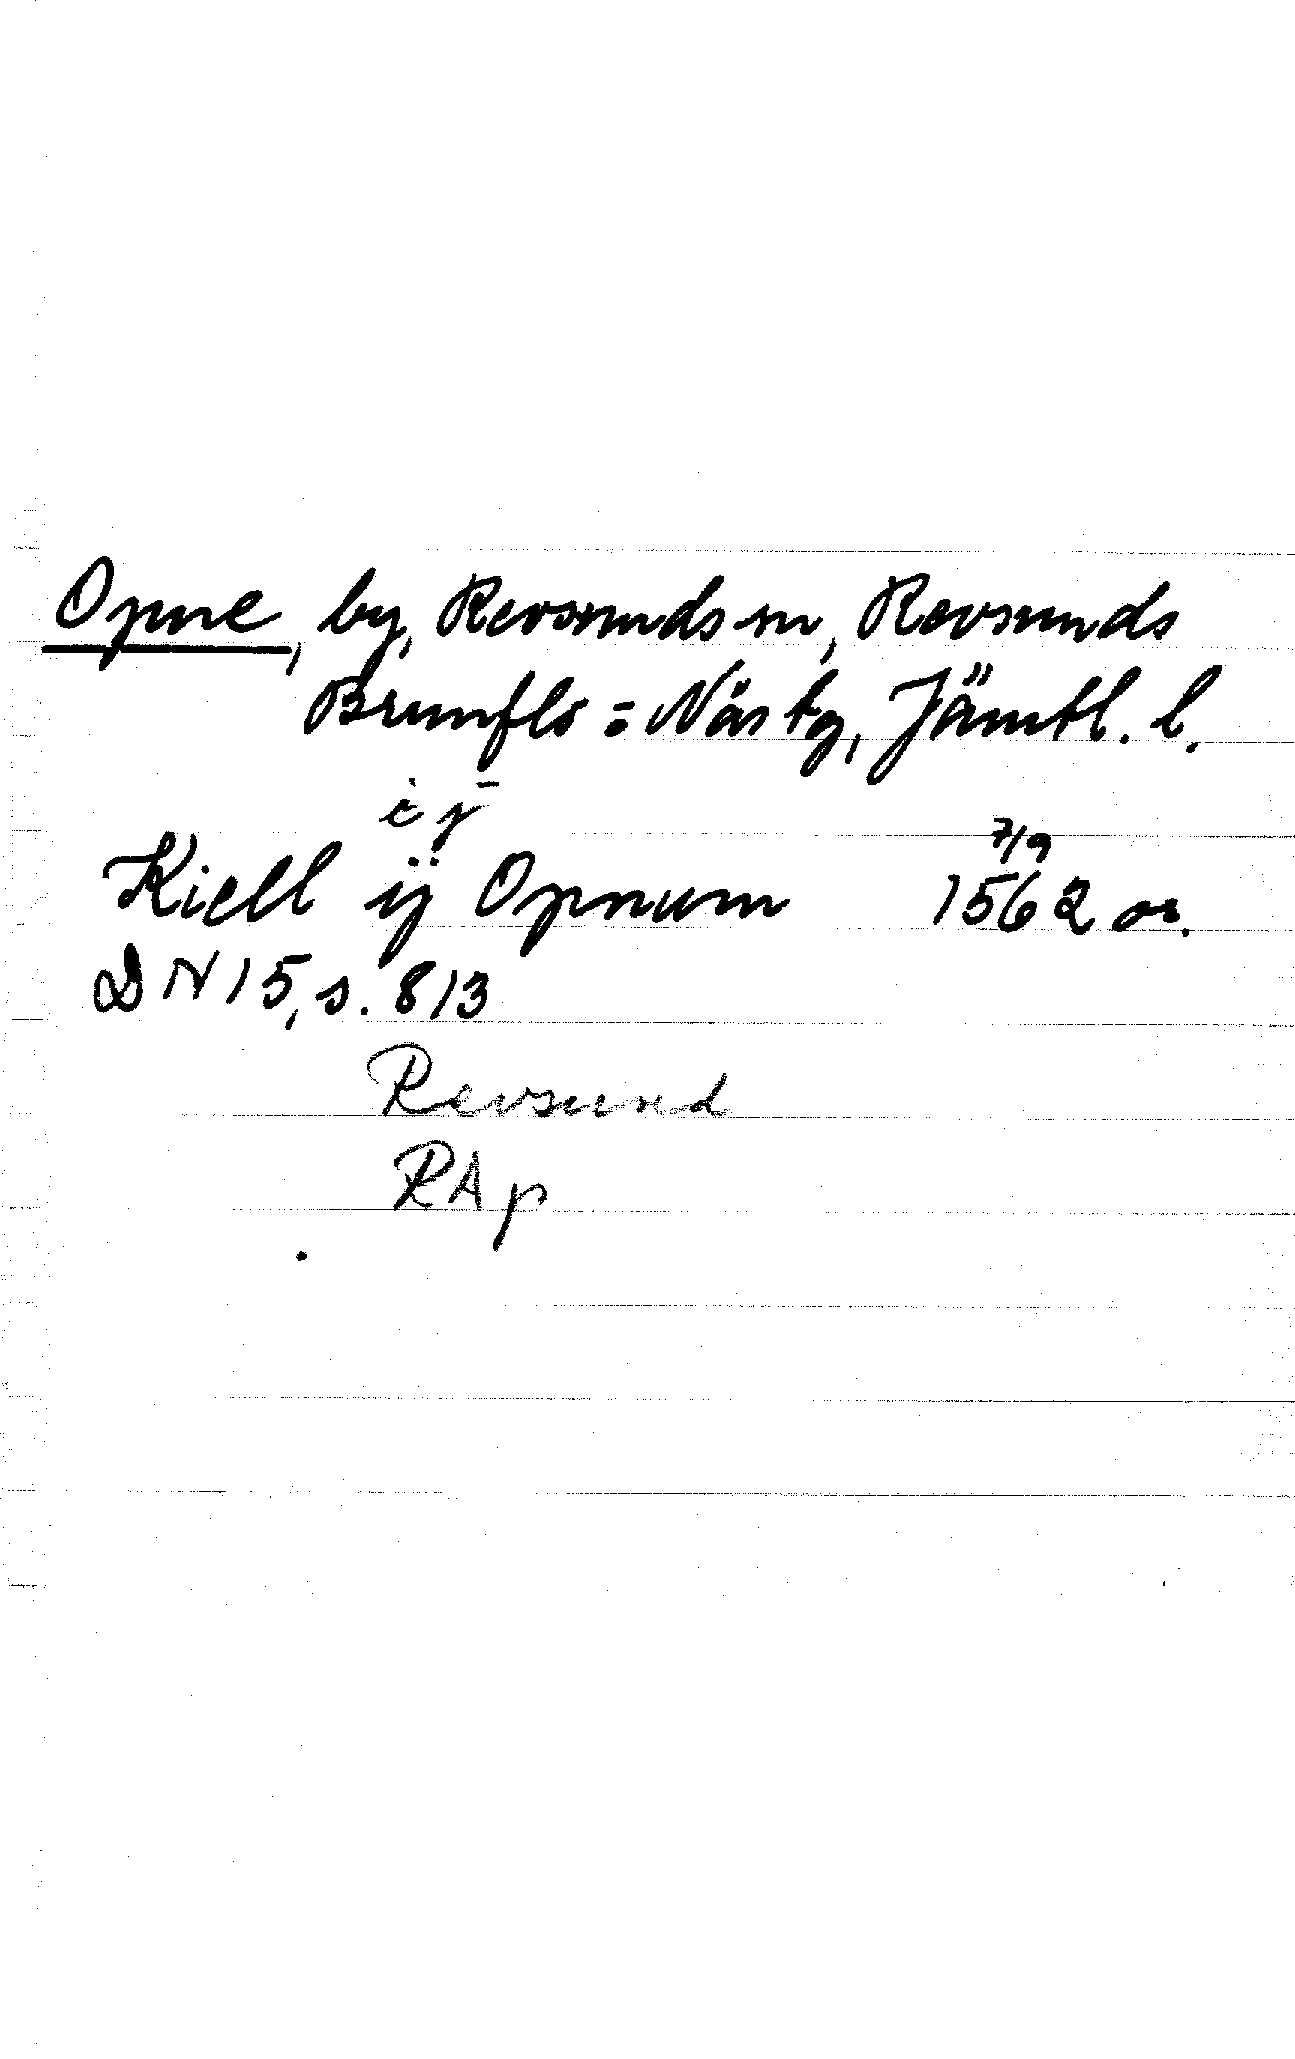 Opne, by, Revsunds sn, Revsunds
Brunflo = Näs tg, Jämtl. l.
i j
Kiell ij Opnum 7/9 1562 or.
DN 15, s. 813
Revsund
RAp